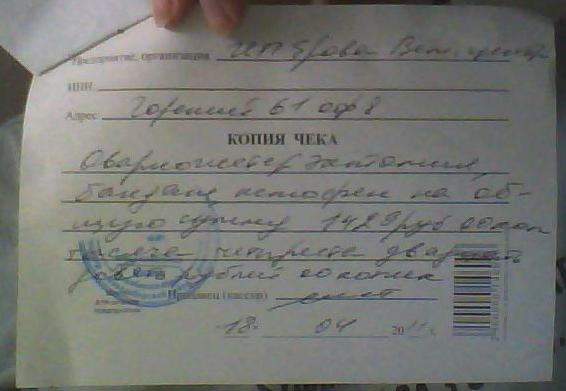 Предприятие, организация ЧП Ерова Вет. центр
ИНН
Адрес Горький 61 оф 8
КОПИЯ ЧЕКА
Овариогистерэктомия,
бандаж кетофен на об-
щую сумму 1429 руб 00 коп
тысяча четыреста двадцать
девять рублей 00 копеек
Продавец (кассир)
18 04 2011 г.